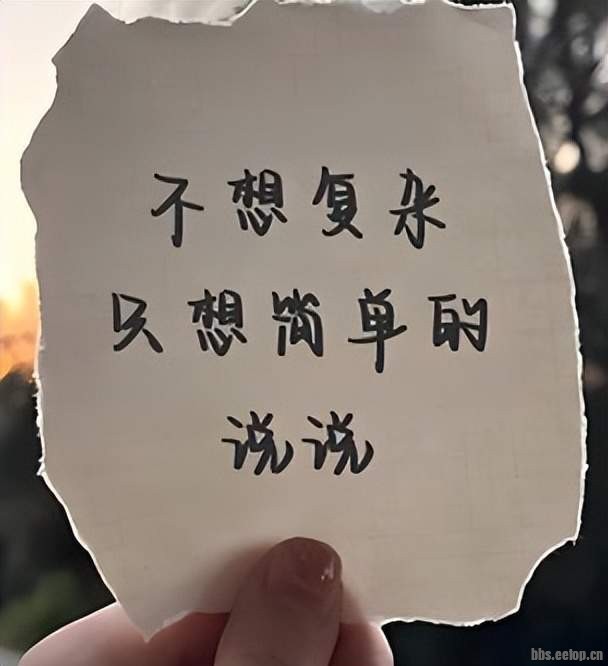 不想复杂
只想简单的
说说
bbs.eetop.cn